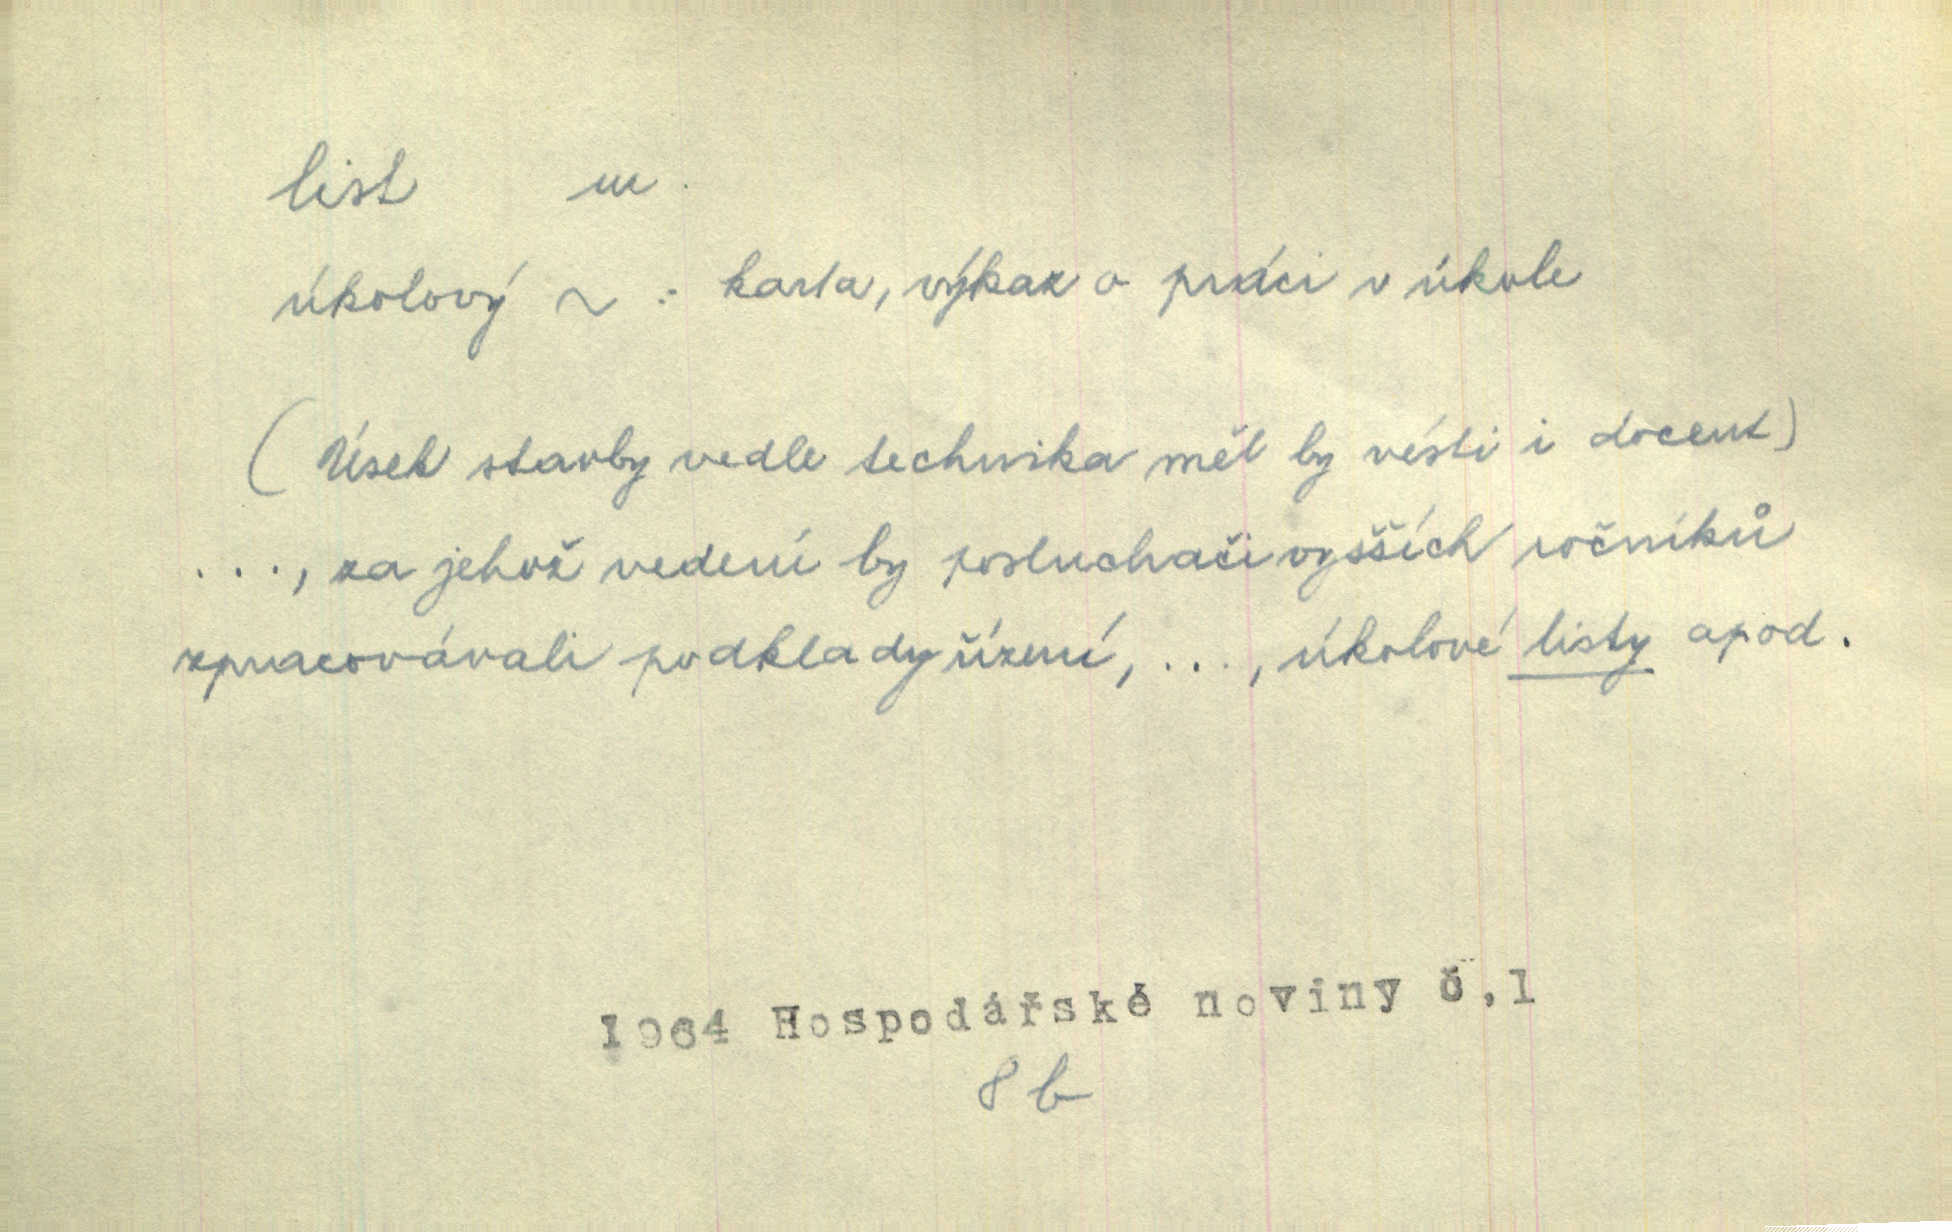 list m.
úkolový ~ : karta, výkaz o práci v úkole
(Úsek stavby vedle technika měl by vésti i docent)
..., za jehož vedení by posluchači vyšších ročníků
zpracovávali podklady řízení, ..., úkolové listy apod.
1964 Hospodářské noviny č.1
8 b